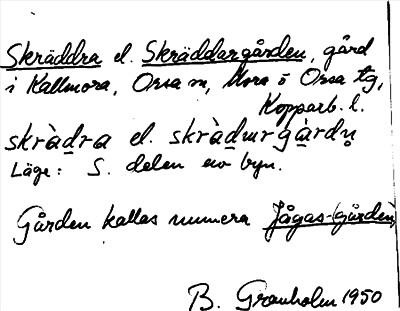 Skräddra el. Skräddargården, gård
i Kallmora, Orsa sn, Mora o Orsa tg,
Kopparb. l.
skràd̲ra el. skràd̲urgà̲rdn̥
Läge: S. delen av byn.
Gården kallas numera Jågas-(gården)
B. Granholm 1950